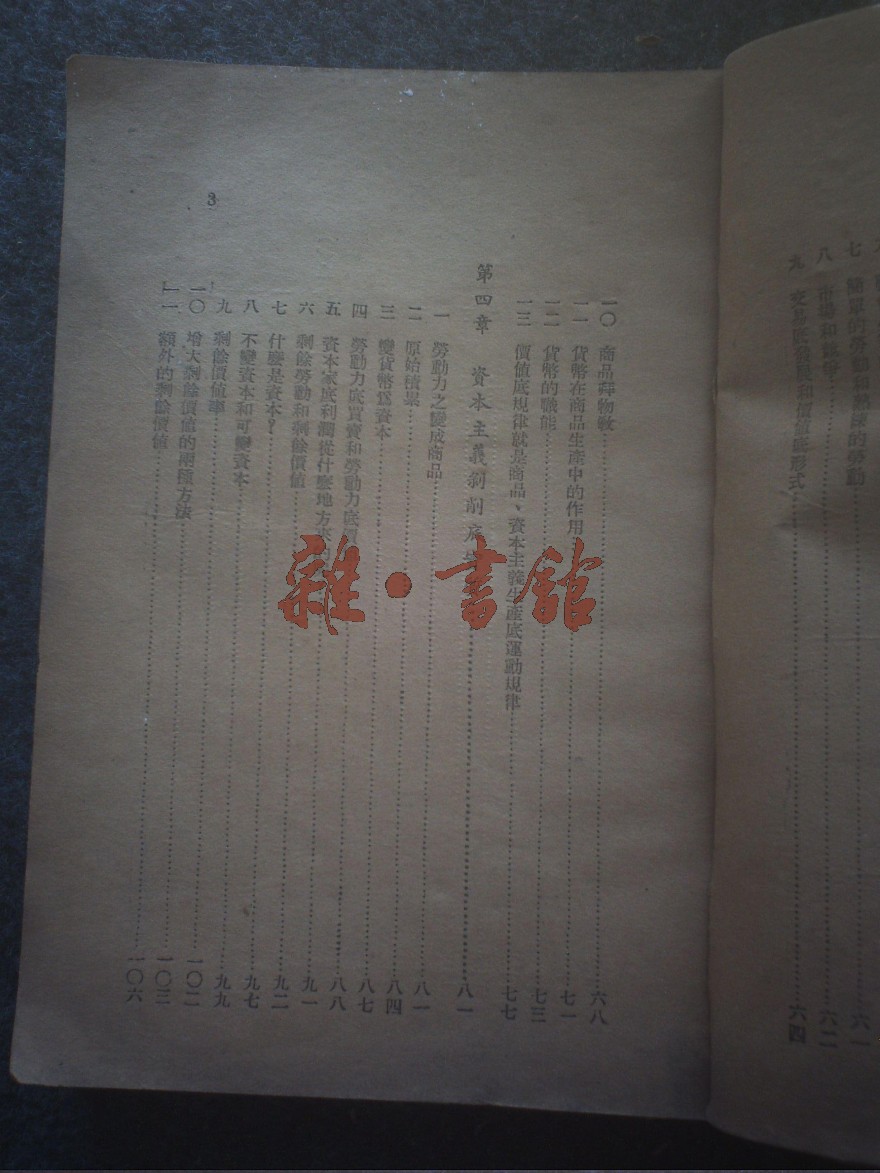 七 簡單的勞動和熟練的勞動……六一
八 市場和競爭……六二
九 交易底發展和價值底形式……六四
一〇 商品拜物敎……六八
一一 貨幣在商品生產中的作用……七一
一二 貨幣的職能……七三
一三 價值底規律就是商品、資本主義生產底運動規律……七七
第四章 資本主義剝削底……八一
一 勞動力之變成商品……八一
二 原始積累……八四
三 變貨幣爲資本……八七
四 勞動力底買賣和勞動力底價……八八
五 資本家底利潤從什麽地方來的……九一
六 剩餘勞動和剩餘價値……九二
七 什麽是資本?……九七
八 不變資本和可變資本……九九
九 剩餘價値率……一〇二
一〇 增大剩餘價値的兩種方法……一〇三
一一 額外的剩餘價値……一〇六
3
雜·書館